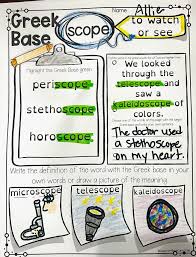 Greek Base
scope
Name Allie
to watch
or see
Highlight the Greek Base green
periscope
stethoscope
horoscope
We looked
through the
telescope and
saw a
kaleidoscope of
colors.
The doctor used
a stethoscope
on my heart.
Write the definition of the word with the Greek base in your
own words or draw a picture of the meaning.
microscope
telescope
kaleidoscope